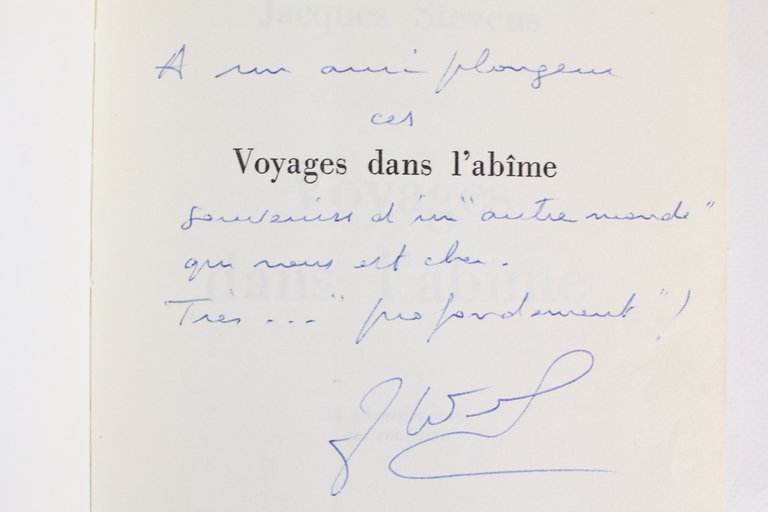 Jacques Stevens
A un ami plongeur
ces
Voyages dans l'abîme
souvenirs d'un "autre monde"
qui nous est cher.
Très... "profondément" !